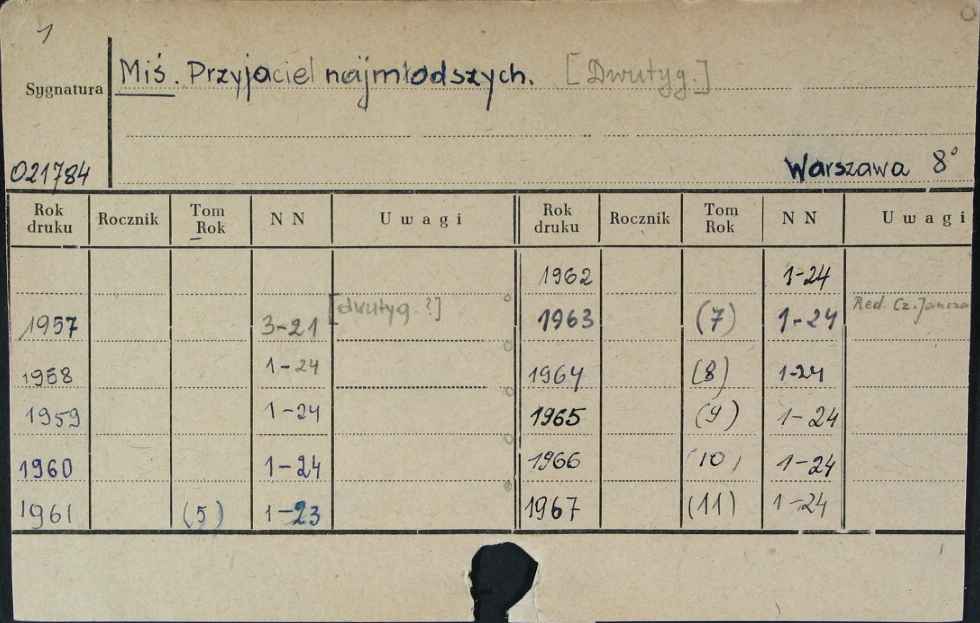 1
Sygnatura
Miś. Przyjaciel najmłodszych. [Dwutyg.]
021784
Warszawa 8°
Rok druku Rocznik Tom Rok NN Uwagi Rok druku Rocznik Tom Rok NN Uwagi
1962 1-24
1957 3-21 [dwutyg.?] 1963 (7) 1-24 Red. Cz. Jancza
1958 1-24 1964 (8) 1-24
1959 1-24 1965 (9) 1-24
1960 1-24 1966 (10) 1-24
1961 (5) 1-23 1967 (11) 1-24